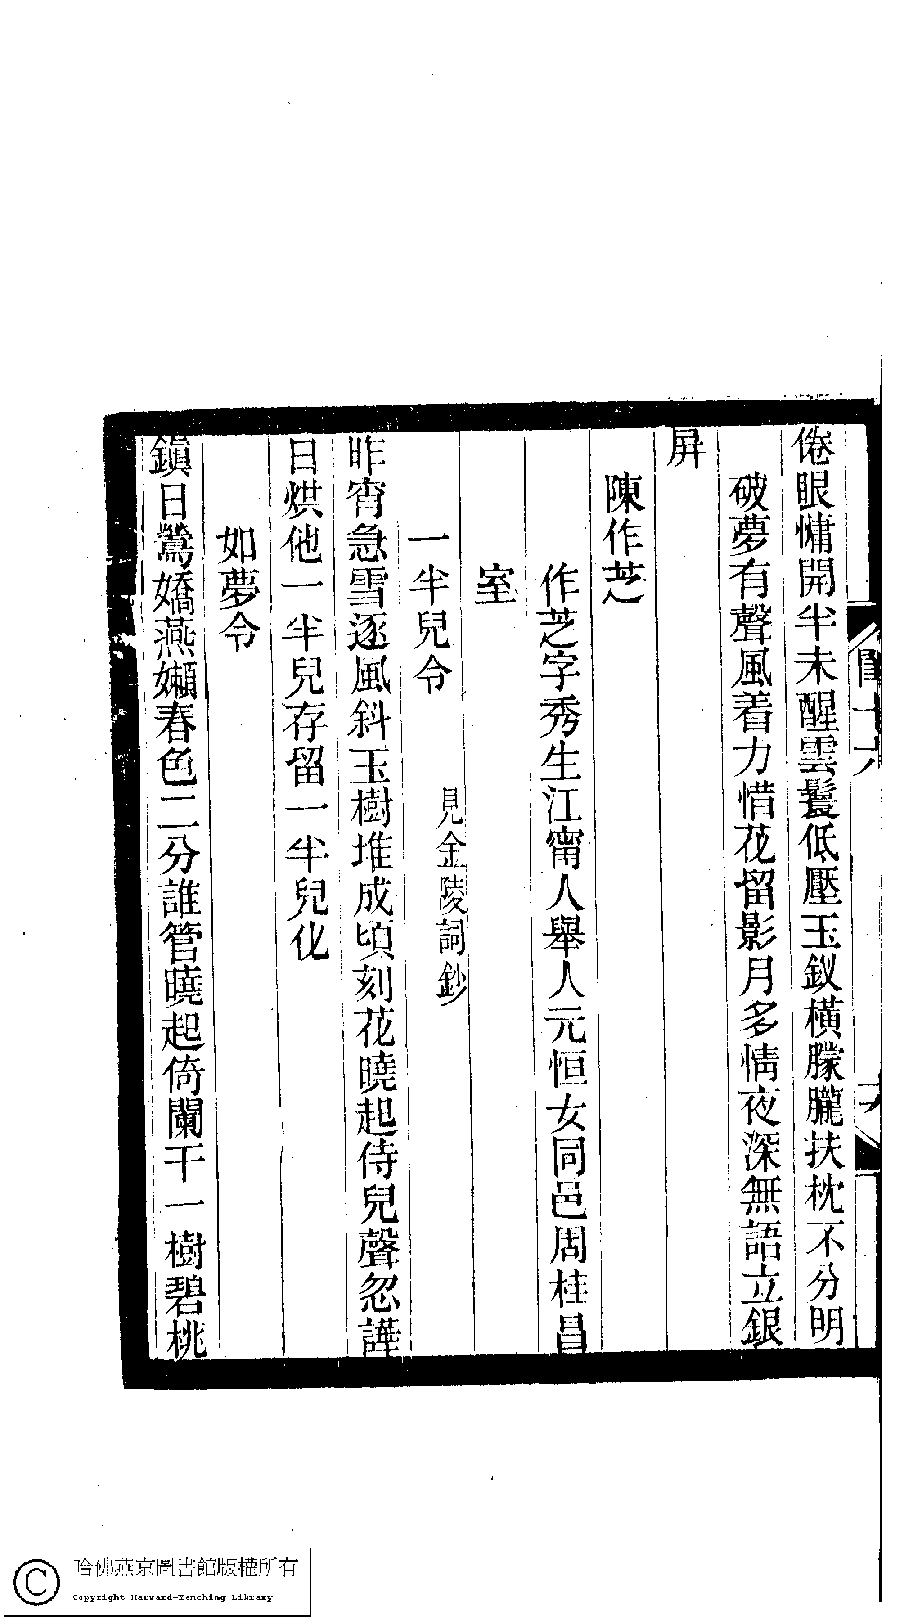 倦眼慵開半未醒雲鬟低壓玉釵橫朦朧扶枕不分明
破夢有聲風着力惜花留影月多情夜深無語立銀
屏
陳作芝
作芝字秀生江甯人舉人元恒女同邑周桂昌
室
一半兒令
見金陵詞鈔
昨宵急雪逐風斜玉樹堆成頃刻花曉起侍兒聲忽譁
日烘他一半兒存留一半兒化
如夢令
鎮日鶯嬌燕嬾春色二分誰管曉起倚闌干一樹碧桃
哈佛燕京圖書館版權所有
Copyright Harvard-Yenching Library